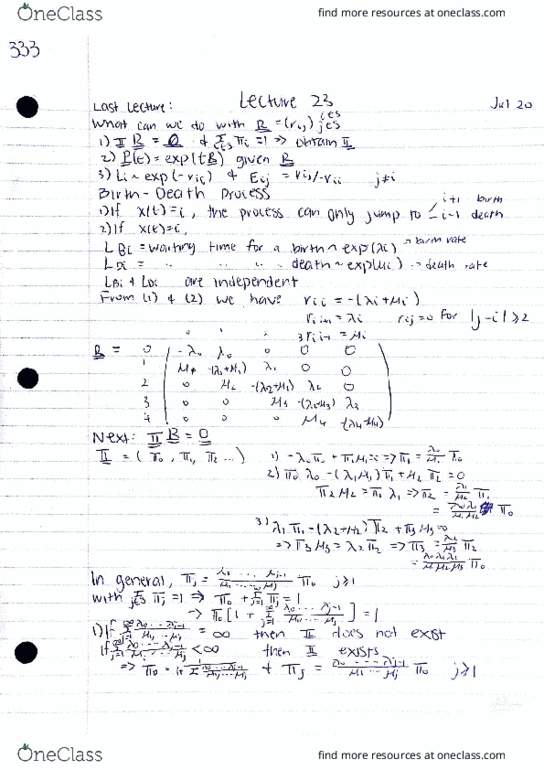 OneClass
find more resources at oneclass.com
333
Lecture 23
Jul 20
Last Lecture:
What can we do with R = (rij) i∈S j∈S
1) Π R = 0 & Σ i∈S πi = 1 => obtain Π
2) P(t) = exp(tR) given R
3) Li ~ exp(-rii) & Eij = rij/-rii j≠i
Birth-Death Process
1) If X(t)=i, the process can only jump to < i+1 birth i-1 death
2) If X(t)=i,
LBi = waiting time for a birth ~ exp(λi) -> birth rate
LDi = " " " " death ~ exp(μi) -> death rate
LBi & LDi are independent
From (1) & (2) we have rii = -(λi+μi)
rii+1 = λi rij=0 for |j-i|≥2
rii-1 = μi
0 1 2 3
R = 0 -λ0 λ0 0 0 0
1 μ1 -(λ1+μ1) λ1 0 0
2 0 μ2 -(λ2+μ2) λ2 0
3 0 0 μ3 -(λ3+μ3) λ3
4 0 0 0 μ4 -(λ4+μ4)
Next: Π R = 0
Π = (π0, π1, π2 ...)
1) -λ0π0 + π1μ1 = 0 => π1 = λ0/μ1 π0
2) π0 λ0 - (λ1μ1)π1 + μ2 π2 = 0
π2 μ2 = π1 λ1 => π2 = λ1/μ2 π1
= λ0λ1/μ1μ2 π0
3) λ1 π1 - (λ2+μ2) π2 + π3 μ3 = 0
=> π3 μ3 = λ2 π2 => π3 = λ2/μ3 π2
= λ0λ1λ2/μ1μ2μ3 π0
In general, πj = λ0 ... λj-1/μ1 ... μj π0 j≥1
with Σ j∈S πj = 1 => π0 + Σ j=1 ∞ πj = 1
-> π0 [1 + Σ j=1 ∞ λ0 ... λj-1/μ1 ... μj] = 1
1) If Σ j=1 ∞ λ0 ... λj-1/μ1 ... μj = ∞ then Π does not exist
If Σ j=1 ∞ λ0 ... λj-1/μ1 ... μj < ∞ then Π exists
=> π0 = 1/1+Σ λ0 ... λj-1/μ1 ... μj & πj = λ0 ... λj-1/μ1 ... μj π0 j≥1
OneClass
find more resources at oneclass.com